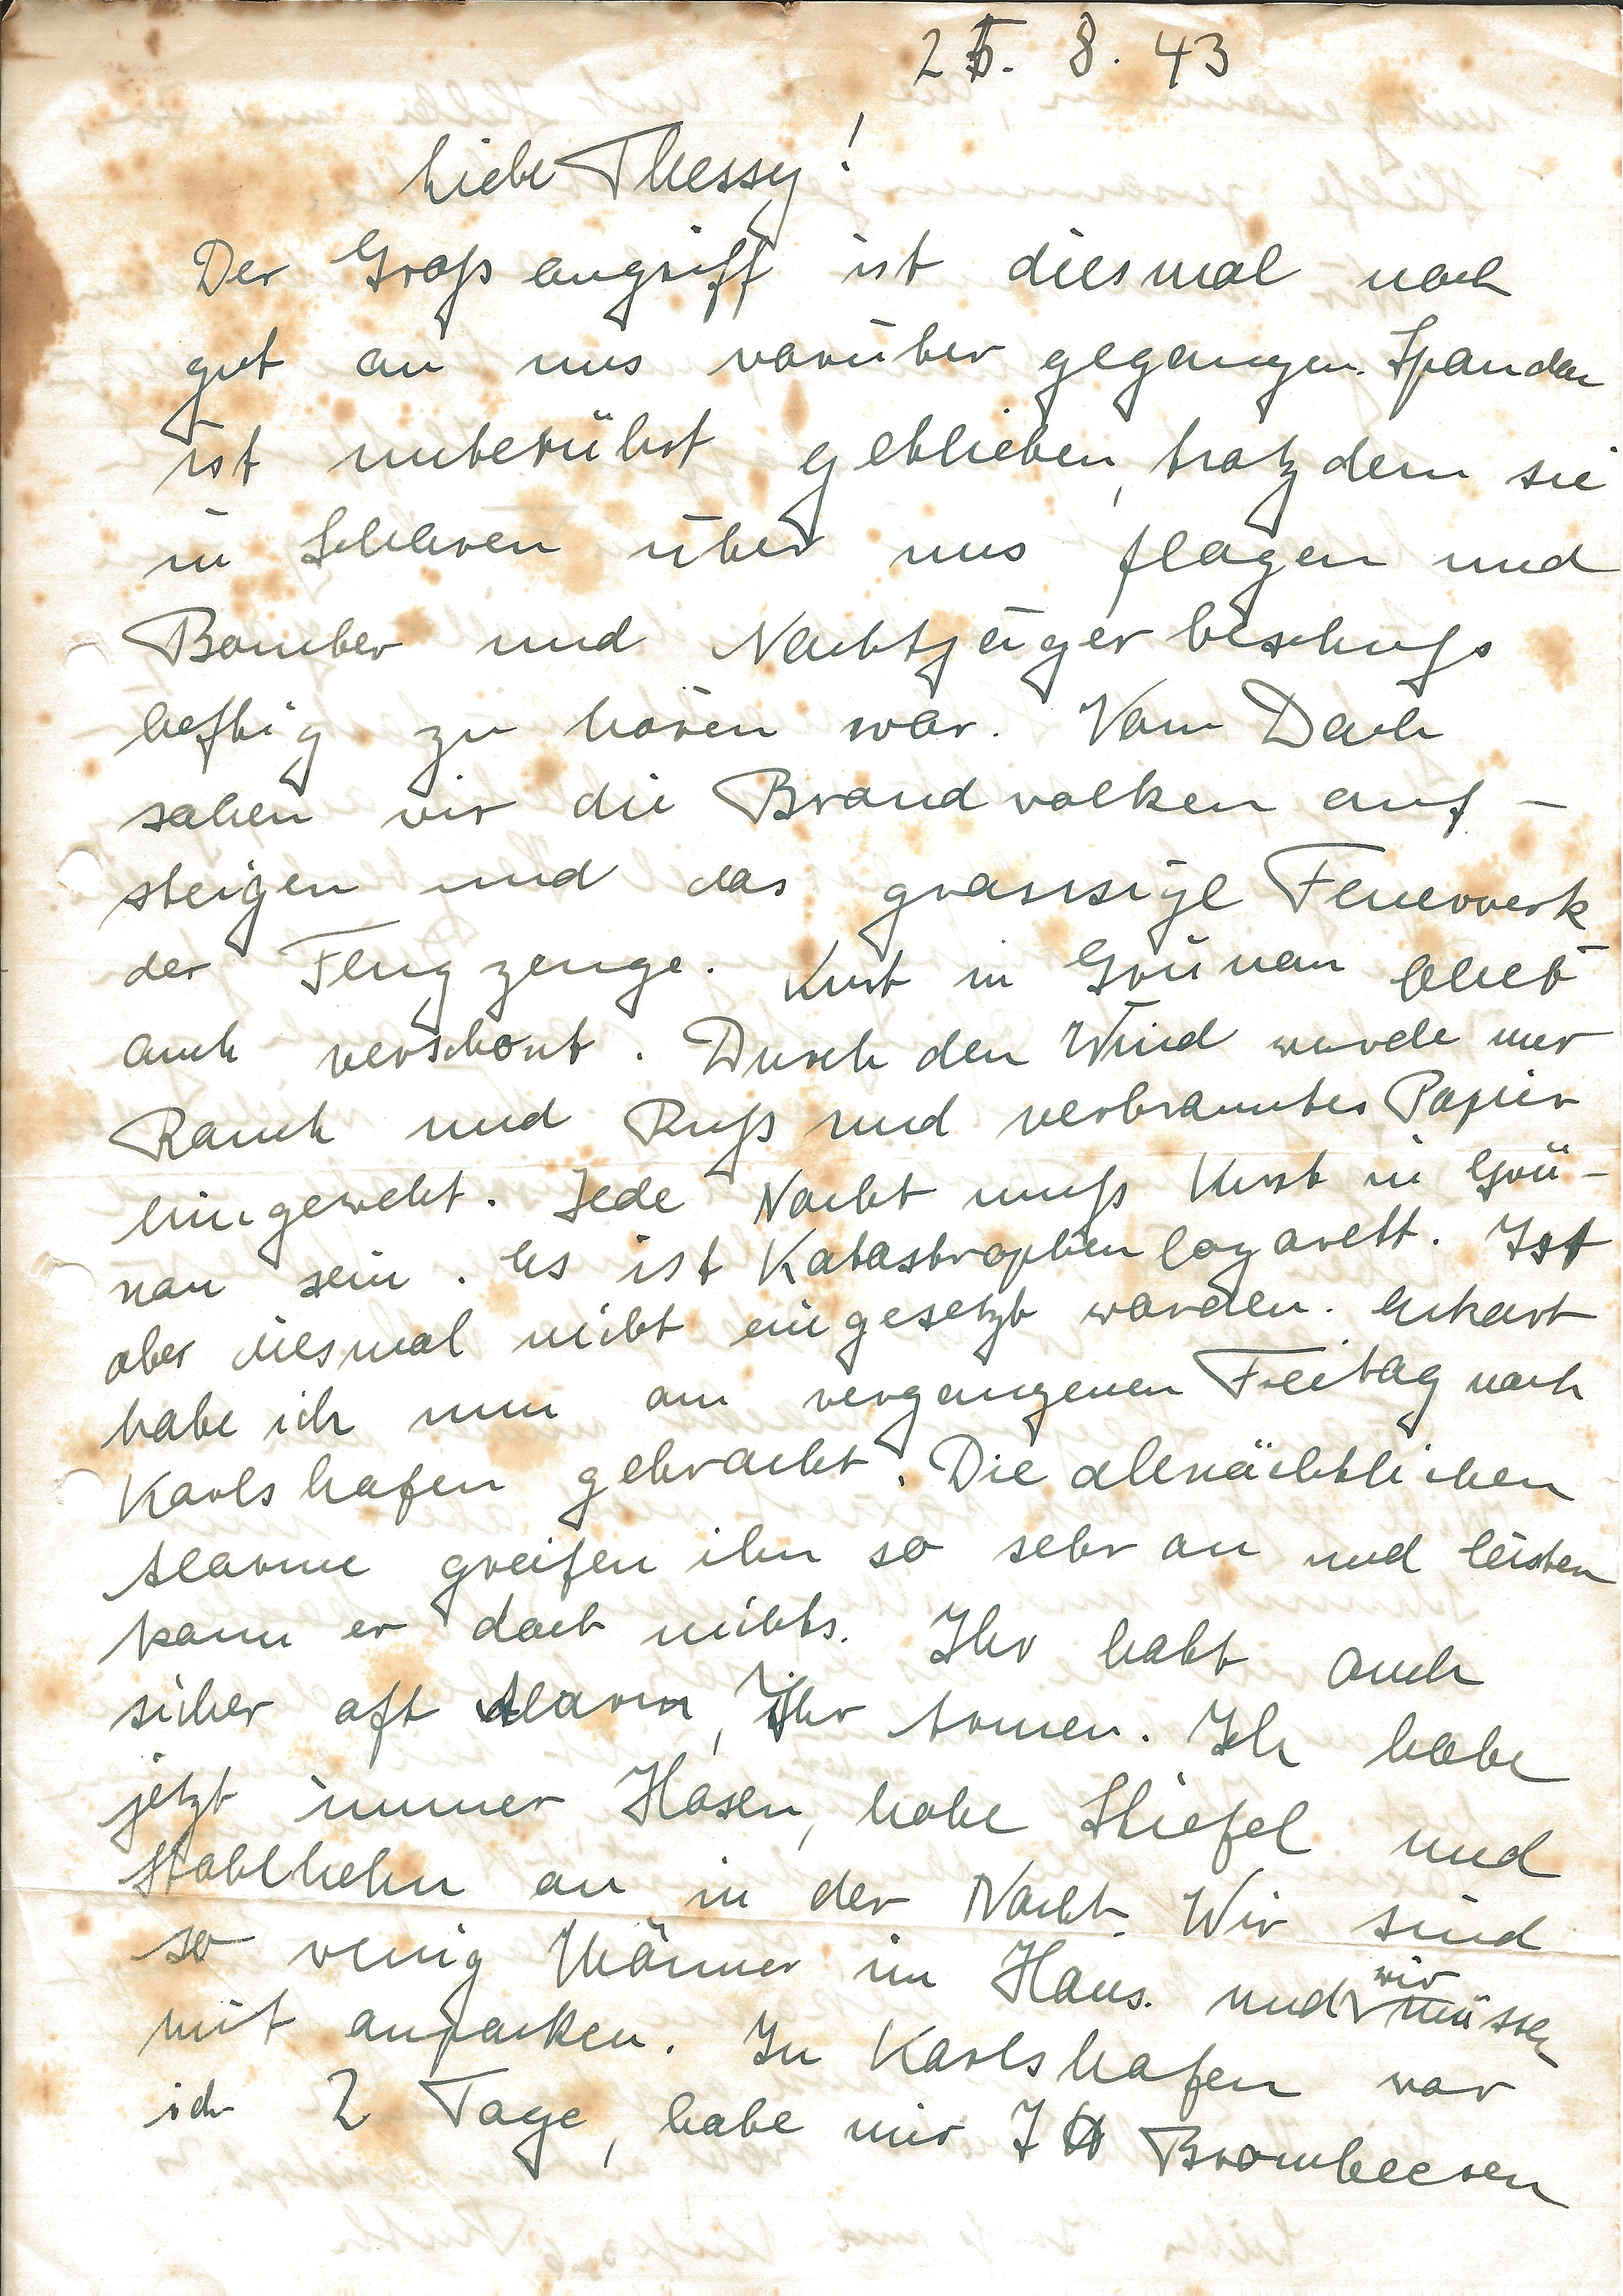 25. 8. 43
Liebe Thessy!
Der Großangriff ist diesmal noch
gut an uns vorüber gegangen. Spandau
ist unberührt geblieben, trotzdem sie
in Scharen über uns flogen und
Bomber und Nachtjägerbeschuß
heftig zu hören war. Vom Dach
sahen wir die Brandwolken auf-
steigen und das grausige Feuerwerk
der Flugzeuge. Kurt in Grünau blieb
auch verschont. Durch den Wind wurde nur
Rauch und Ruß und verbranntes Papier
hingeweht. Jede Nacht muß Kurt in Grü-
nau sein. Es ist Katastrophenlazarett. Ist
aber diesmal nicht eingesetzt worden. Ekart
habe ich nun am vergangenen Freitag nach
Karlshafen gebracht. Die allnächtlichen
Alarme greifen ihn so sehr an und leisten
kann er doch nichts. Ihr habt auch
sicher oft Alarm, Ihr Armen. Ich habe
jetzt immer Hosen, hohe Stiefel und
Stahlhelm an in der Nacht. Wir sind
so wenig Männer im Haus. und wir müssen
mit anpacken. In Karlshafen war
ich 2 Tage, habe mir 7 ℔ Brombeeren